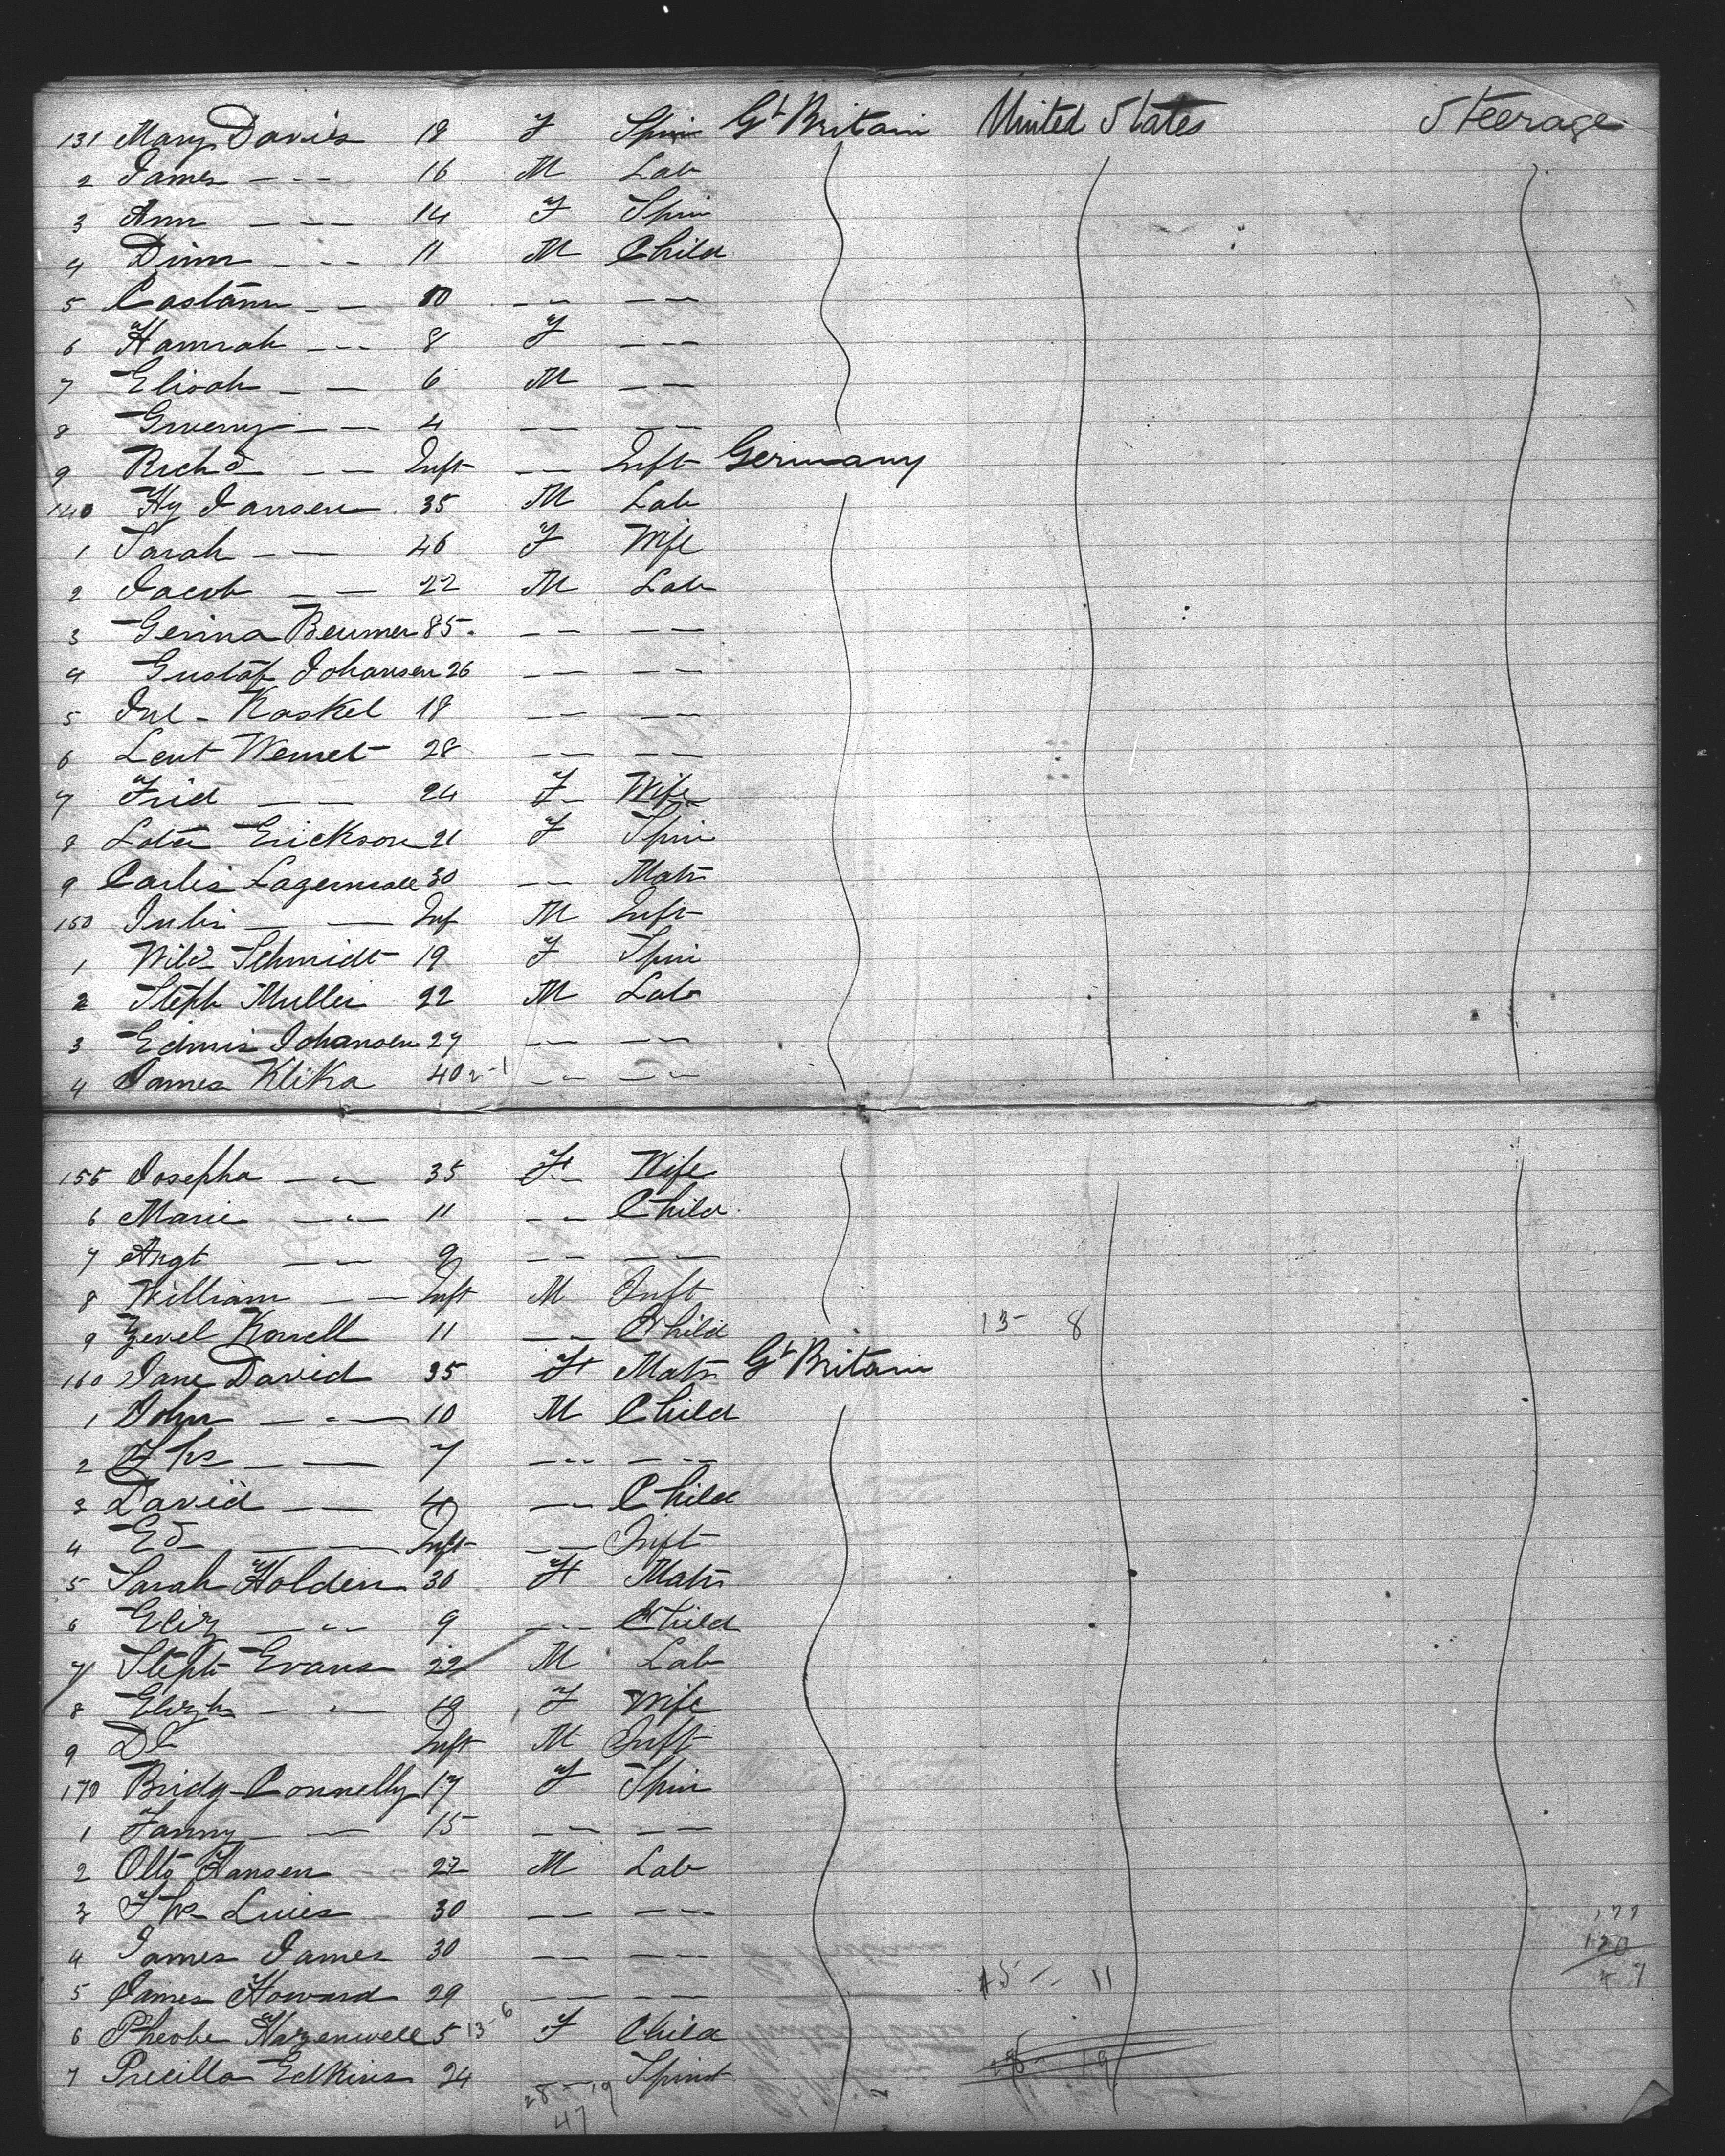 131 Mary Davis 18 F Spin Gt Britain United States Steerage
2 James - - - 16 M Lab
3 Ann - - - 14 F Spin
4 - - - 11 M Child
5 - - 10 - - - -
6 Hannah - - - 8 F - -
7 Elisah - - 6 M - -
8 - - - 4 - - - -
9 Richd - - Inft - - Inft Germany
140 Hy Jansen 35 M Lab
1 Sarah - - 46 F Wife
2 Jacob - - 22 M Lab
3 Gerina Beumer 85 - - - -
4 Gustaf Johansen 26 - - - -
5 Jul - Kaskel 18 - - - -
6 Lent Wemet 28 - - - -
7 Frid - - 24 F - Wife
8 Erickson 21 F Spin
9 30 - - Matr
150 - - Inf M Inft
1 Wild Schmidt 19 F Spin
2 Steph Muller 22 M Lab
3 Johansen 27 - - - -
4 James Klika 40 2-1 - - - -
155 Josepha - - 35 F - Wife
6 Marie - - 11 - - Child
7 Augt - - 9 - - - -
8 William - - Inft M Inft
9 11 - - Child 13- 8
160 Jane David 35 F Matr Gt Britain
1 John - - - 10 M Child
2 Ths - - 7 - - - - -
3 David - - 4 - - Child
4 Ed - - Inft - - Inft
5 Sarah Holden 30 F Matr
6 Eliz - - 9 - - - Child
7 Steph Evans 22 M Lab
8 Elizh - - 19 F Wife
9 Inft M Inft
170 Bridg Connelly 17 F Spin
1 Fanny - - 15 - - - -
2 Otto Hansen 27 M Lab
3 30 - - - - -
4 James James 30 - - - - -
5 James Howard 29 - - - - 15- 11
6 Pheobe 5 13-6 F Child
7 Precilla Edkins 24 Spinst 28 - 19
28 - 19
47